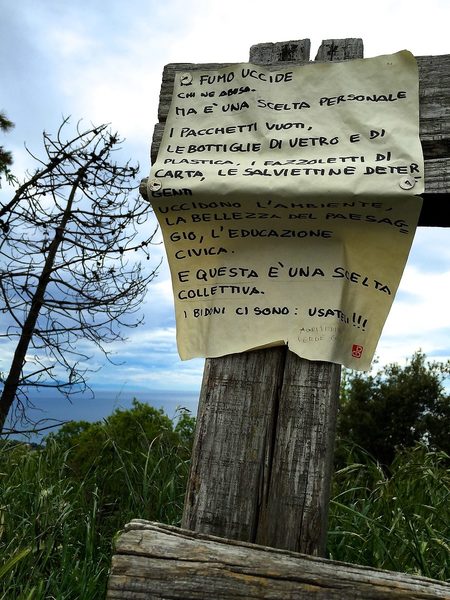 FUMO UCCIDE
CHI NE ABUSA.
MA È UNA SCELTA PERSONALE
I PACCHETTI VUOTI,
LE BOTTIGLIE DI VETRO E DI
PLASTICA, I FAZZOLETTI DI
CARTA, LE SALVIETTINE DETER
GENTI
UCCIDONO L'AMBIENTE,
LA BELLEZZA DEL PAESAG
GIO, L'EDUCAZIONE
CIVICA.
E QUESTA È UNA SCELTA
COLLETTIVA.
I BIDONI CI SONO: USATELI!!!
VERDE